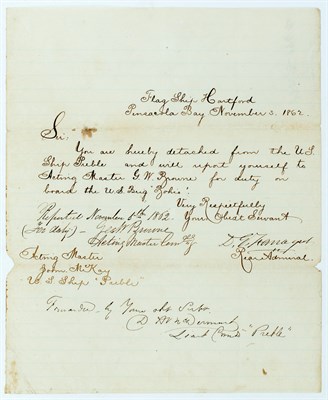 Flag Ship Hartford
Pensacola Bay November 3. 1862.
Sir
You are hereby detached from the U.S
Ship Preble and will report yourself to
Acting Master G. W. Browne for duty on
board the U.S Brig "Bohio"
Very Respectfully
Reported November 6th 1862 Your Obedt Servant
(for duty) — G W Browne
Acting Master Comdg D. G. Farragut
Rear Admiral.
Acting Master
John McKay
U S Ship "Preble"
Forwarded by Your obt Servt
Lieut Comdr "Preble"